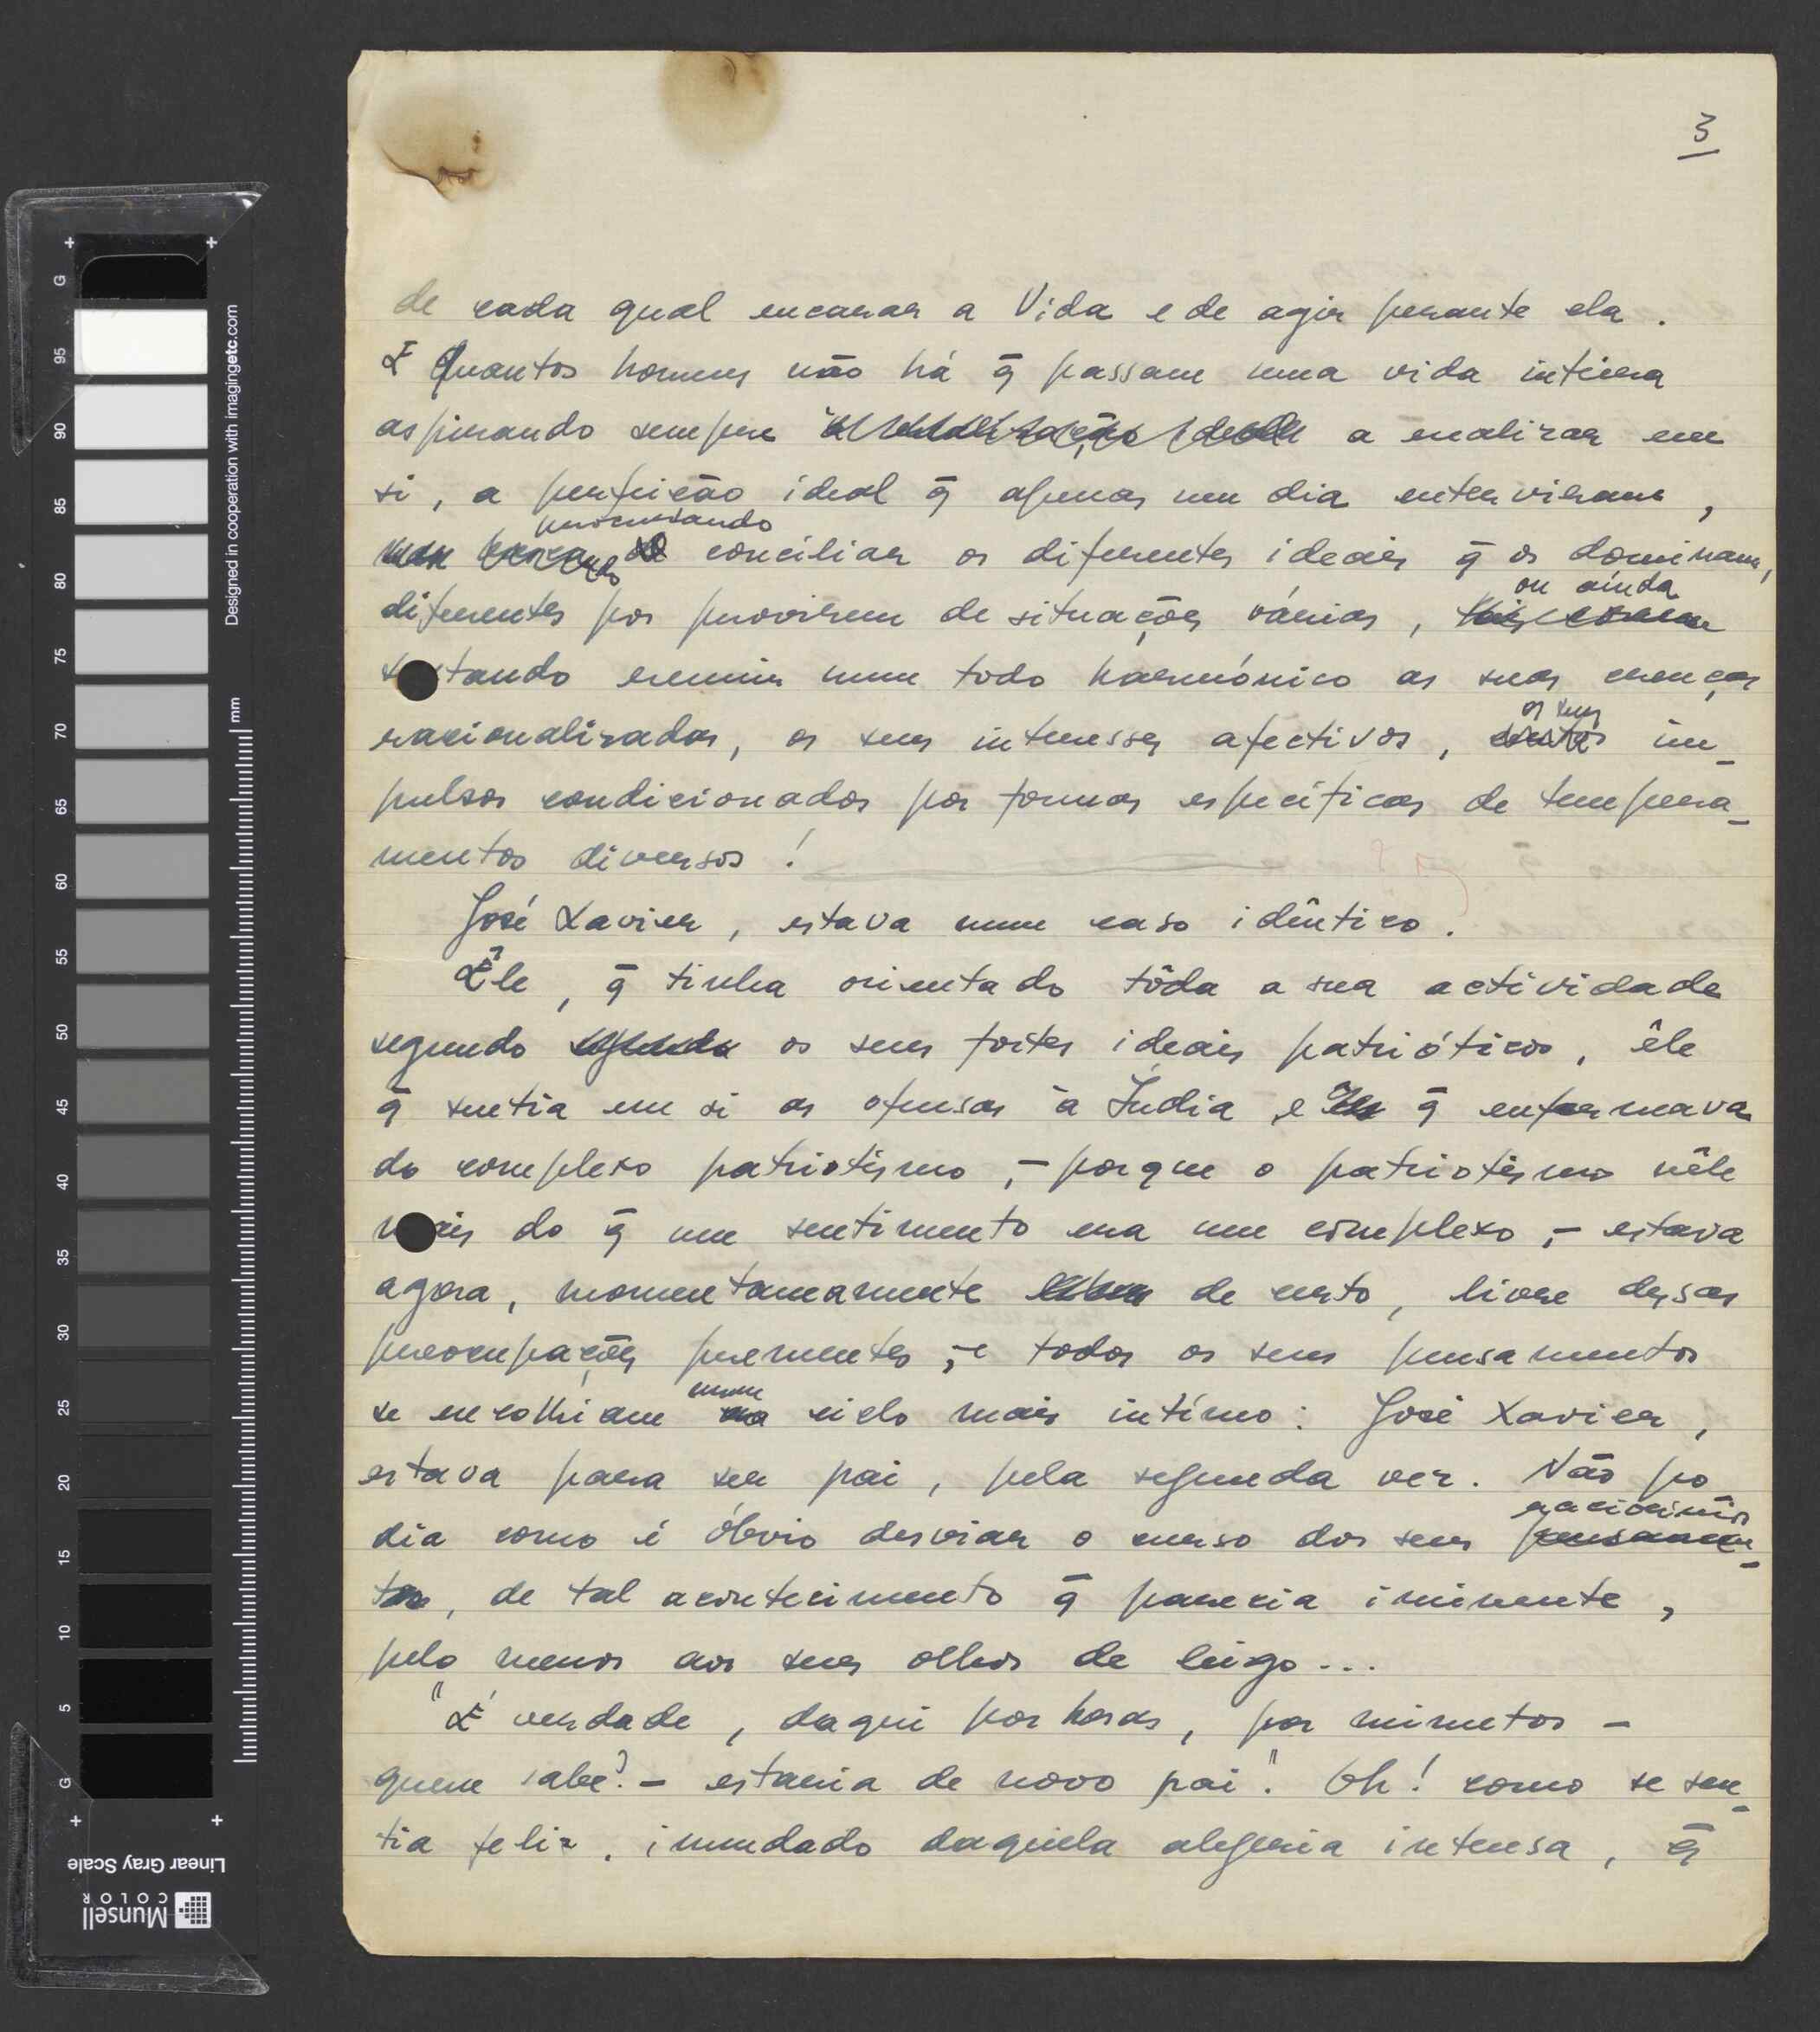 3
de cada qual encarar a Vida e de agir perante ela.
E Quantos homens não há q̄ passam uma vida inteira
aspirando sempre a realizar em
si, a perfeição ideal q̄ apenas um dia enterviram,
procurando
conciliar os diferentes ideais q̄ os dominam,
ou ainda
diferentes por provirem de situações várias,
tando reunir num todo harmónico as suas crenças
os seus
racionalizadas, os seus interesses afectivos, im-
pulsos condicionados por formas específicas de tempera-
mentos diversos!
José Xavier, estava num caso idêntico.
Êle, q̄ tinha orientado tôda a sua actividade
segundo os seus fortes ideais patrióticos, êle
q̄ sentia em si as ofensas à Índia e q̄ enfermava
do complexo patriotismo, - porque o patriotismo nêle
mais do q̄ um sentimento era um complexo, - estava
agora, momentaneamente de certo, livre dessas
preocupações prementes, - e todos os seus pensamentos
num
se encolhiam ciclo mais intímo: José Xavier,
estava para ser pai, pela segunda vez. Não po
raciocínios
dia como é óbvio desviar o curso dos seus pensamen-
tos, de tal acontecimento q̄ parecia iminente,
pelo menos aos seus olhos de leigo...
"É verdade, daqui por horas, por minutos -
quem sabe? - estaria de novo pai". Oh! como se sen-
tia feliz, inundado daquela alegria intensa, q̄
Designed in cooperation with imagingetc.com
mm
G
95
90
85
80
75
70
65
60
55
50
45
40
35
30
25
20
15
10
5
G
Linear Gray Scale
Munsell
COLOR